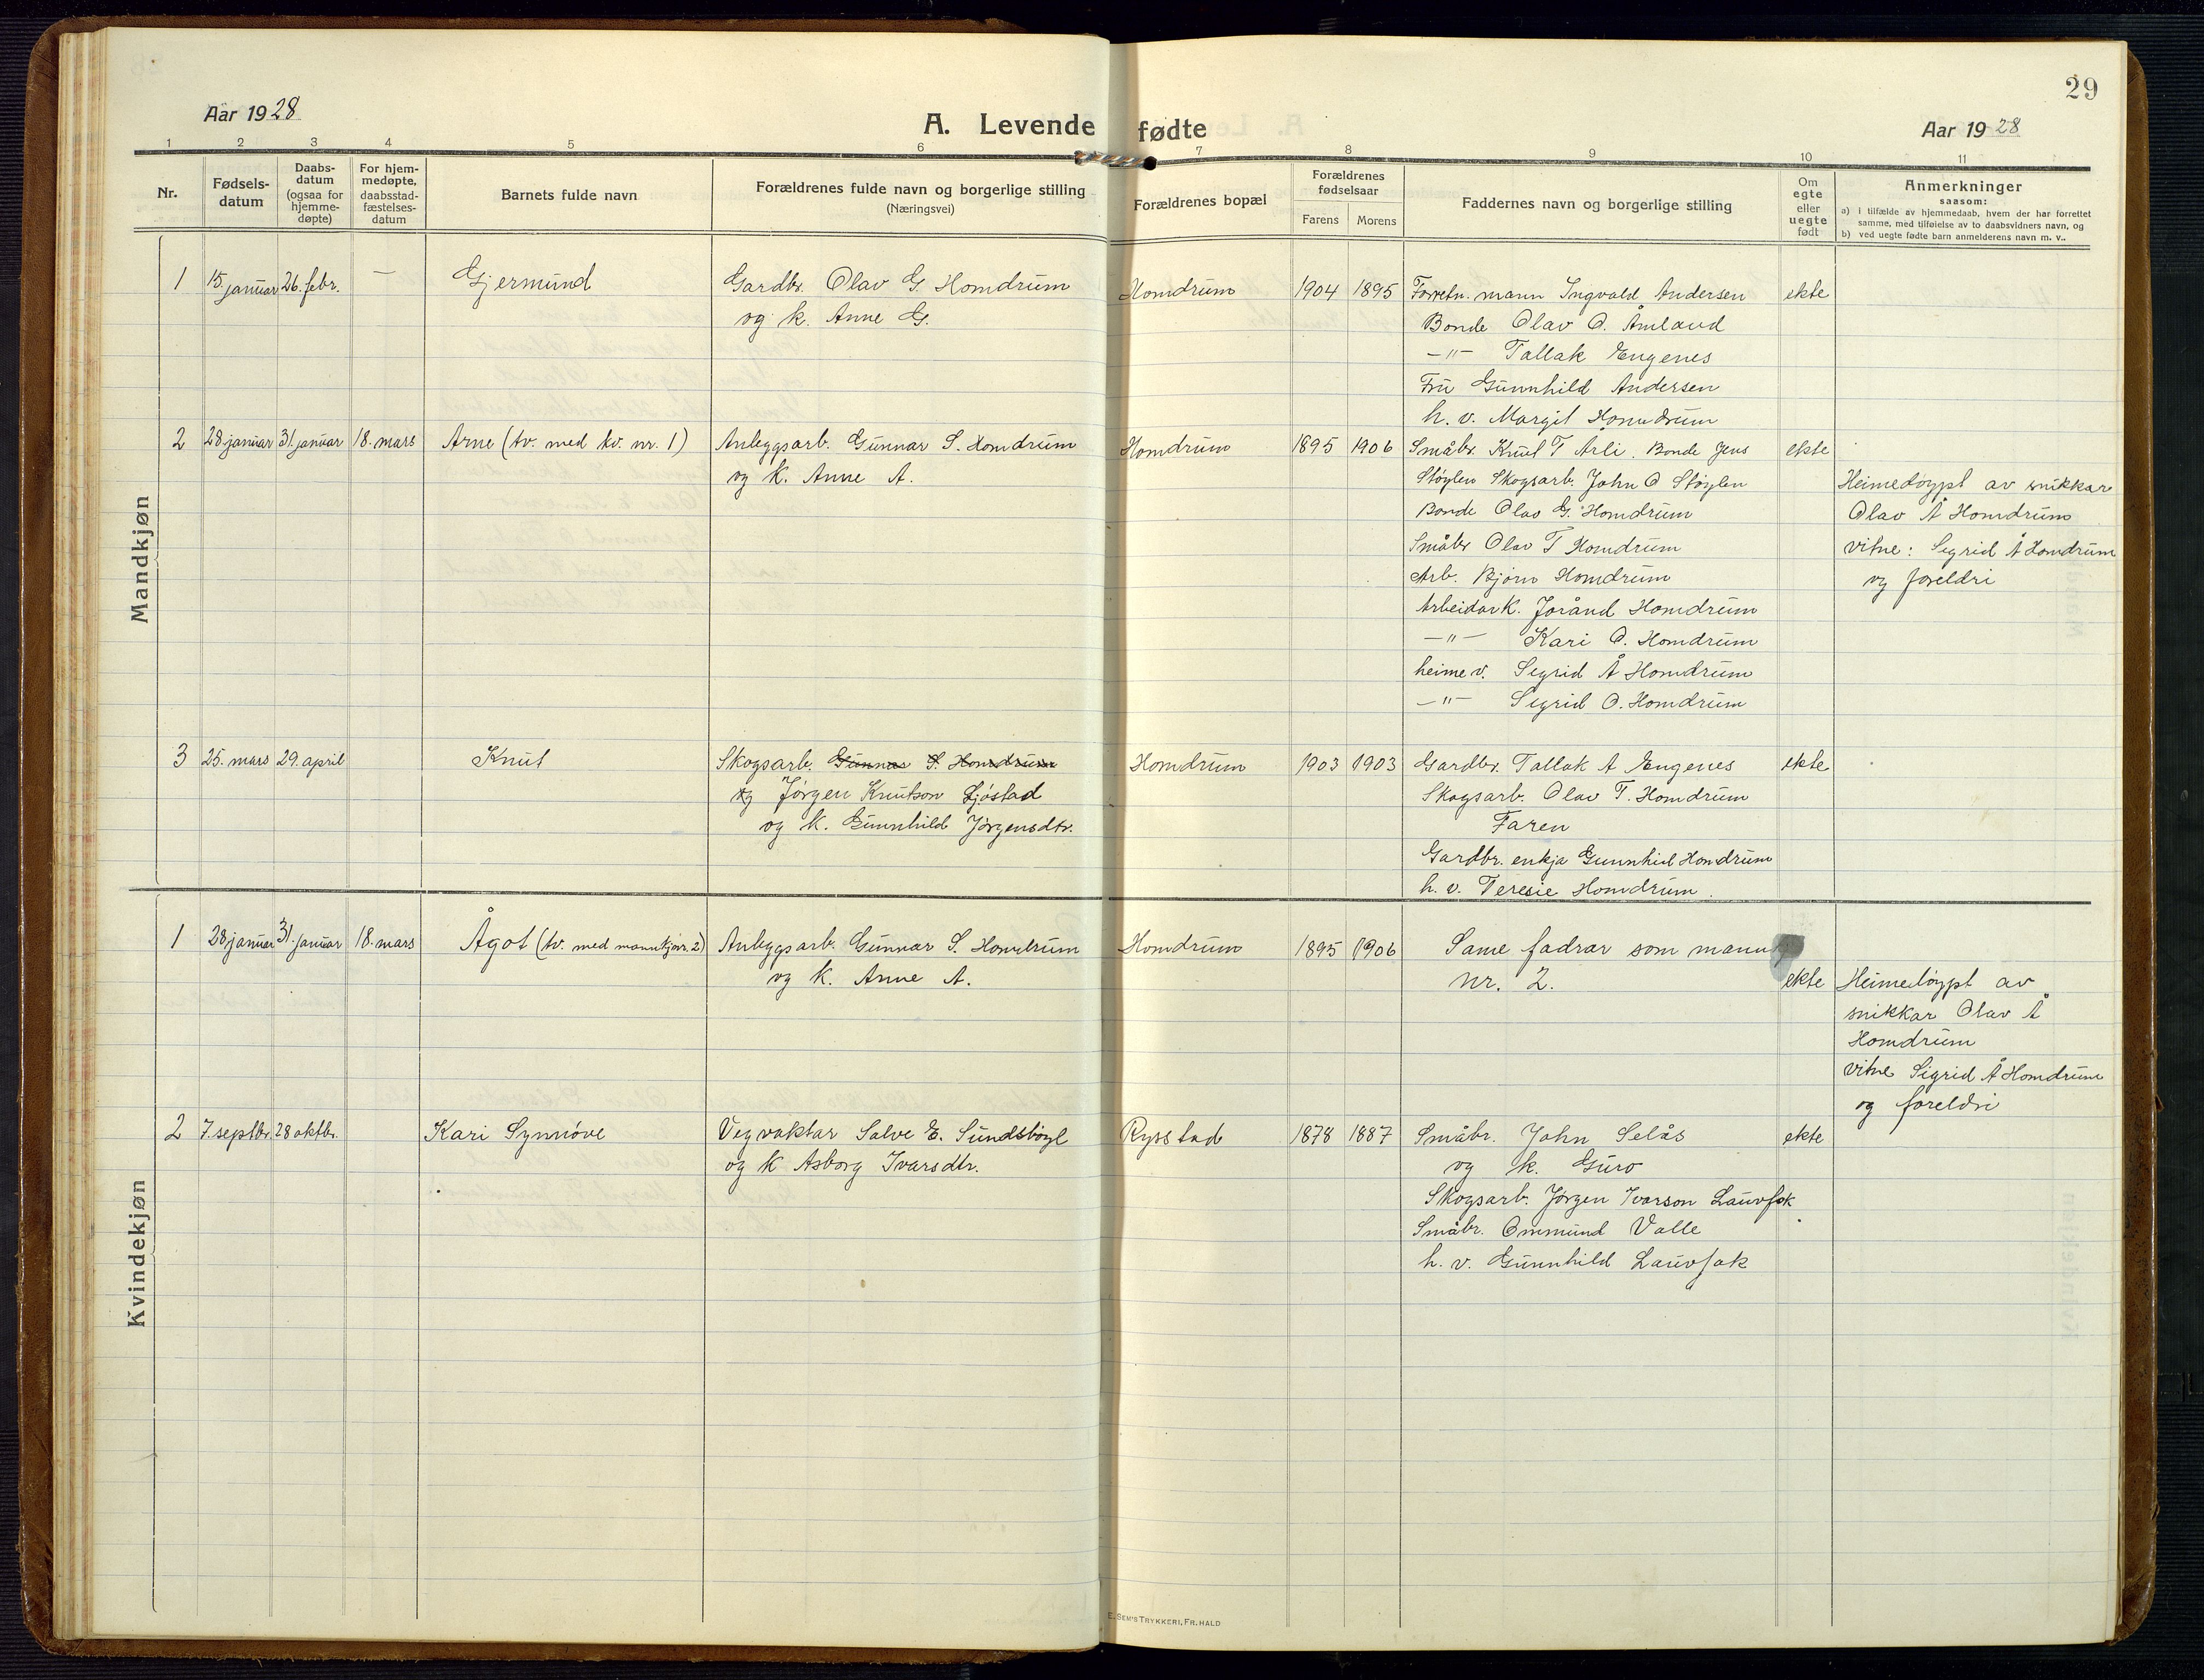 29
Aar 1928
A. Levende fødte
Aar 1928
1 2 3 4 5 6 7 8 9 10 11
Nr.
Fødsels-
datum
Daabs-
datum
(ogsaa for
hjemme-
døpte)
For hjem-
medøpte,
daabsstad-
fæstelses-
datum
Barnets fulde navn
Forældrenes fulde navn og borgerlige stilling
(Næringsvei)
Forældrenes bopæl
Forældrenes
fødselsaar
Farens Morens
Faddernes navn og borgerlige stilling
Om
egte
eller
uegte
født
Anmerkninger
saasom:
a) i tilfælde av hjemmedaab, hvem der har forrettet
samme, med tilføielse av to daabsvidners navn, og
b) ved uegte fødte barn anmelderens navn m. v..
Mandkjøn
1 15. januar 26. febr. — Gjermund Gardbr. Olav G. Homdrum Homdrum 1904 1895 Forretn. mann Ingvald Andersen ekte
og k. Anne G. Bonde Olav O. Åmland
—"— Tallak Engenes
Fru Gunnhild Andersen
h. v. Margit Homdrum
2 28 januar 31. januar 18. mars Arne (tv. med kv. nr. 1) Anleggsarb. Gunnar S. Homdrum Homdrum 1895 1906 Småbr. Knut T Arli. Bonde Jens ekte
og K. Anne A. Støylen Skogsarb. John O Støylen Heimedøypt av snikkar
Bonde Olav G. Homdrum Olav Å Homdrum
Småbr Olav T Homdrum vitne: Sigrid Å Homdrum
Arb. Bjørn Homdrum og foreldri
Arbeidar k. Jorånd Homdrum
—"— Kari O. Homdrum
heime v. Sigrid Å Homdrum
—"— Sigrid O. Homdrum
3 25. mars 29. april Knut Skogsarb. Gunnar S. Homdrum Homdrum 1903 1903 Gardbr. Tallak A Engenes ekte
og Jørgen Knutson Ljóstad Skogsarb. Olav T. Homdrum
og K. Gunnhild Jørgensdtr. Faren
Gardbr. enkja Gunnhild Homdrum
h. v. Teresie Homdrum.
Kvindekjøn
1 28 januar 31. januar 18. mars Ågot (tv. med mannkjønr. 2) Anleggsarb. Gunnar S. Homdrum Homdrum 1895 1906 Same fadrar som mannkj
og K. Anne A. nr. 2. ekte Heimedøypt av
snikkar Olav Å
Homdrum
vitne Sigrid Å Homdrum
og foreldri
2 7. septbr. 28 oktbr. Kari Synnøve Vegvaktar Salve E. Sundsbøyl Rysstad 1878 1887 Småbr. John Selås ekte
og K Asborg Ivarsdtr. og k. Guro
Skogsarb. Jørgen Ivarson Lauvfok
Småbr. Ommund Valle
h. v. Gunnhild Lauvfok
E. SEM'S TRYKKERI, FR. HALD